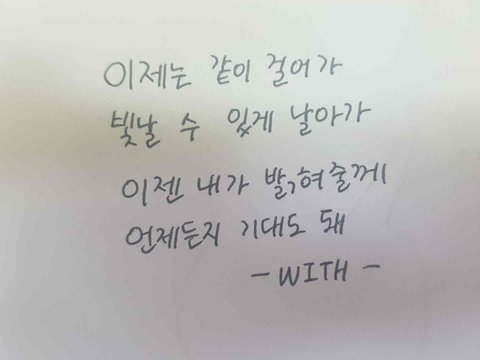 이제는 같이 걸어가
빛날 수 있게 날아가
이젠 내가 밝혀줄께
언제든지 기대도 돼
- WITH -